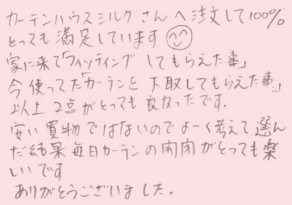 カーテンハウスシルクさんへ注文して100%
とっても満足しています
家に来て「フィッティングしてもらえた事」
今使ってた「カーテンを下取してもらえた事」
以上2点がとっても良なったです。
安い買物ではないのでよーく考えて選ん
だ結果毎日カーテンの開閉がとっても楽
しいです
ありがとうございました。